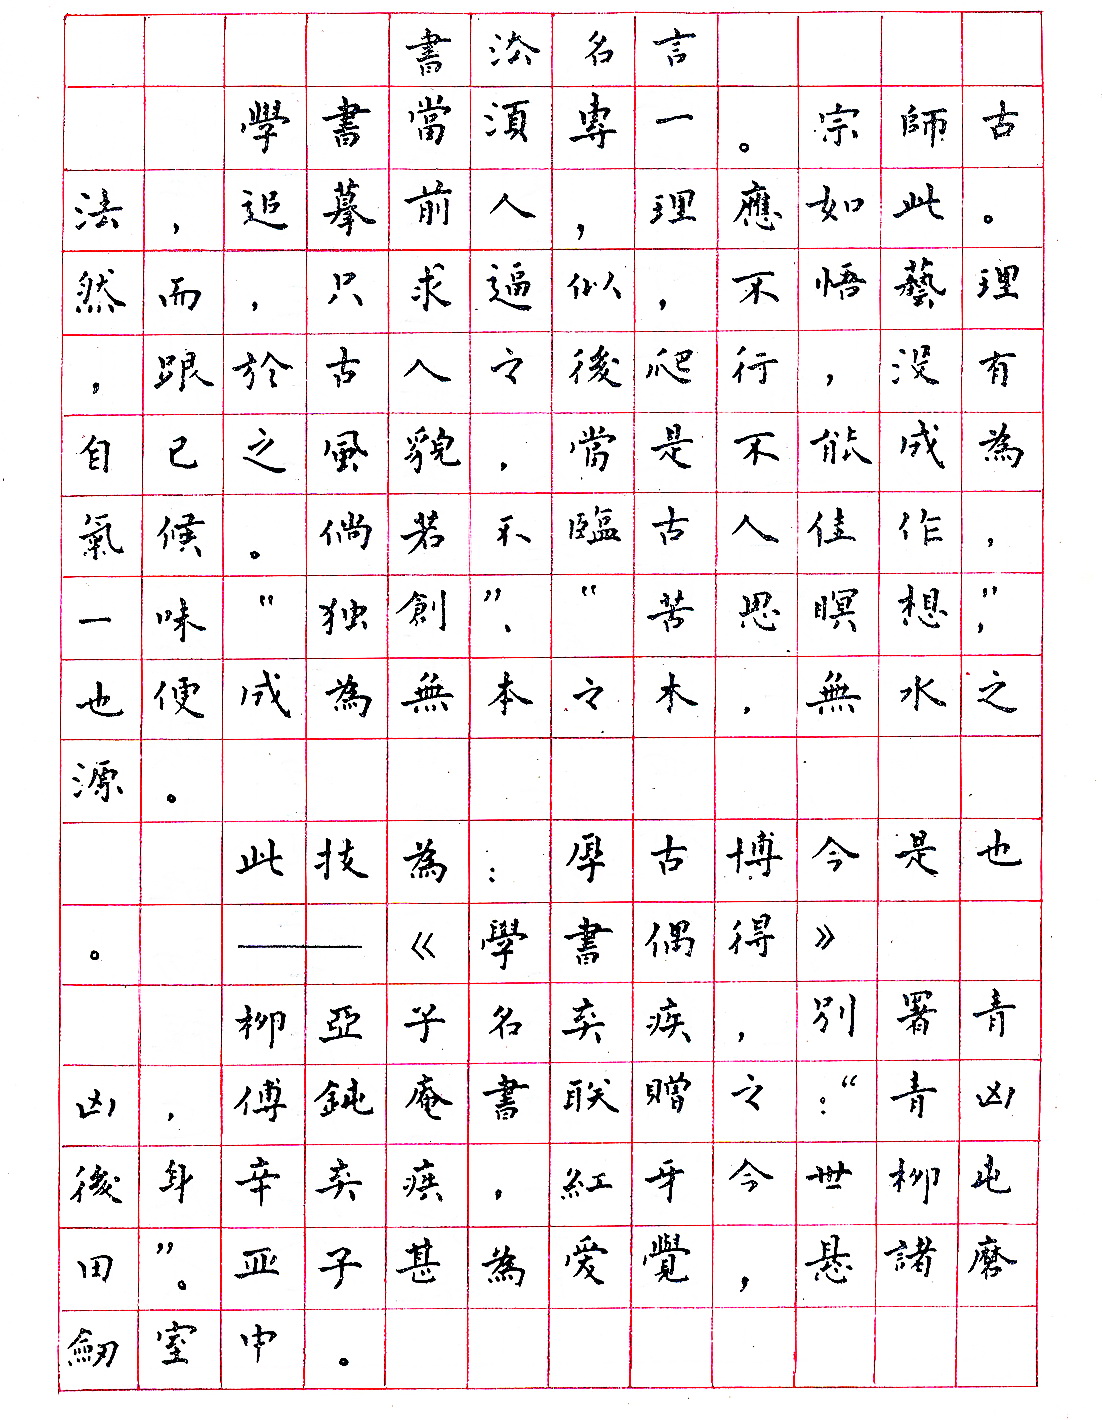 書法名言
學書當須專一。宗師古
法，追摹前人，理應如此。
然而，只求逼似，不悟藝理
，跟於古人之後爬行，没有
自己之風貌，當是不能成為
氣候。倘若不臨古人佳作，
一味“独創”、“苦思瞑想”，
也便成為無本之木，無水之
源。
此技為：厚古博今是也
。——《學書偶得》
柳亞子名弃疾，別署青
凶，傅鈍庵書联贈之：“青凶
後身辛弃疾，紅牙今世柳屯
田”。亚子甚為愛覺，悬諸磨
劒室中。